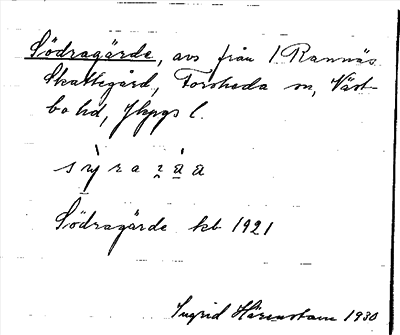 Södragärde, avs från 1 Rannäs
Skattegård, Forsheda sn, Väst-
bo hd, Jkpgs l.
Södragärde kb 1921
Ingrid 1930